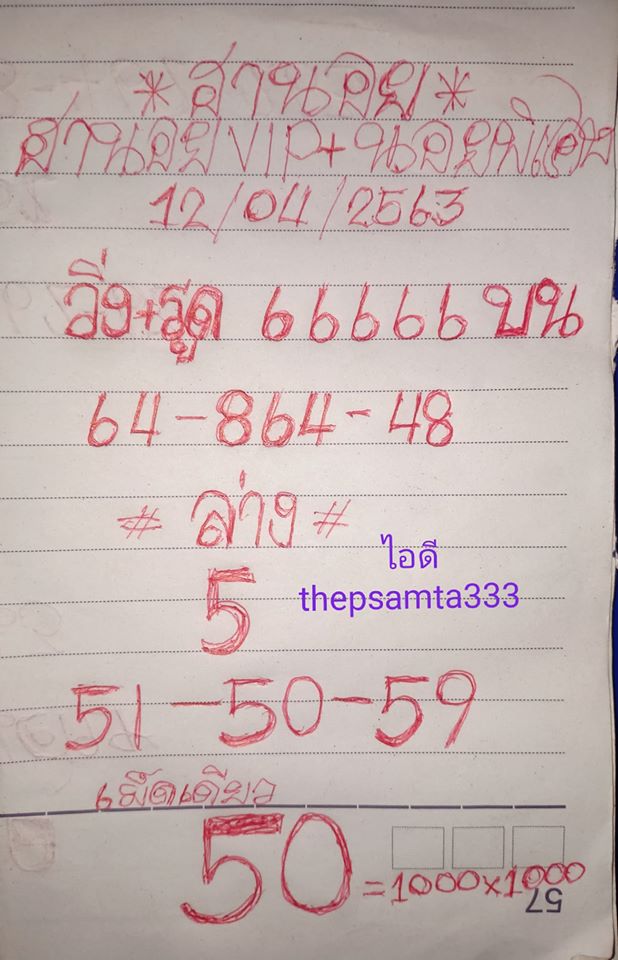 *ฮานอย*
ฮานอยVIP+ฮานอยพิเศษ
12/04/2563
วิ่ง+รูด 66666 บน
64-864-48
# ล่าง #
ไอดี
thepsamta333
5
51-50-59
เม็ดเดียว
50 =1000x1000
57